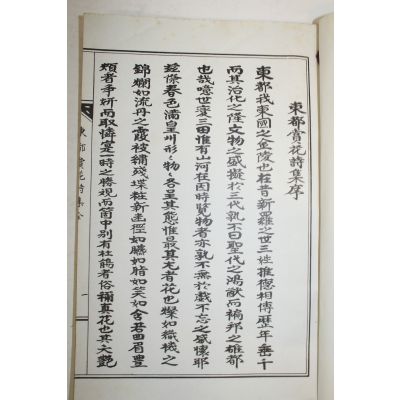 東都賞花詩集序
東都我東國之金陵也在昔新羅之世三姓推德相傳歷年垂千
而其治化之隆文物之盛擬於三代孰不曰聖代之鴻猷而禍邦之雄都
也哉噫世變三田惟有山河在因時覽物者亦孰不無於戲不忘之感懷耶
玆際春色滿皇州形形物物各呈其態惟最其尤者花也燦如織機之
錦爛如流丹之霞被繡殘堞粧新幽徑如臙如脂如笑如含君四眉豊
頰者爭姸而取憐寔一時之勝觀而箇中別有杜鵑者俗稱眞花也其大艶
東都賞花詩集全
一